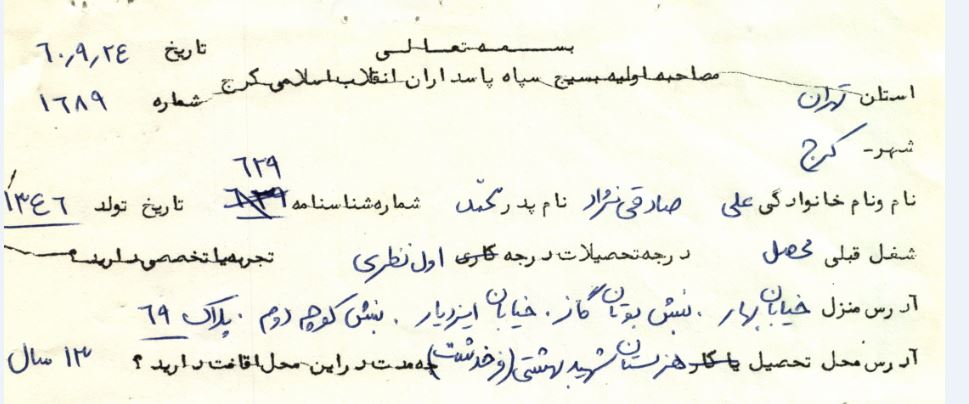 بسمه تعالی تاریخ ٦٠,٩,٢٤
مصاحبه اولیه بسیج سپاه پاسداران انقلاب اسلامی کرج شماره ١٦٨٩
استان تهران
شهر- کرج
٦٢٩
نام ونام خانوادگی علی صادقی نژاد نام پدر محمد شماره شناسنامه تاریخ تولد ١٣٤٦
شغل قبلی محصل درجه تحصیلات درجه کاری اول نظری تجربه یا تخصصی دارید؟
آدرس منزل خیابان بهار . نبش بوتان گاز . خیابان ایزدیار . نبش کوچه دوم . پلاک ٦٩
آدرس محل تحصیل یا کار هنرستان شهید بهشتی (فرخدشت) چه مدت در این محل اقامت دارید ؟ ١٣ سال